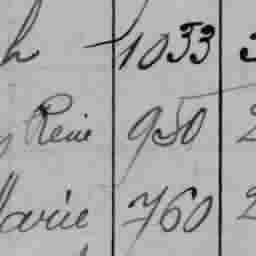 h 1033 3
René 950 2
Marie 760 2